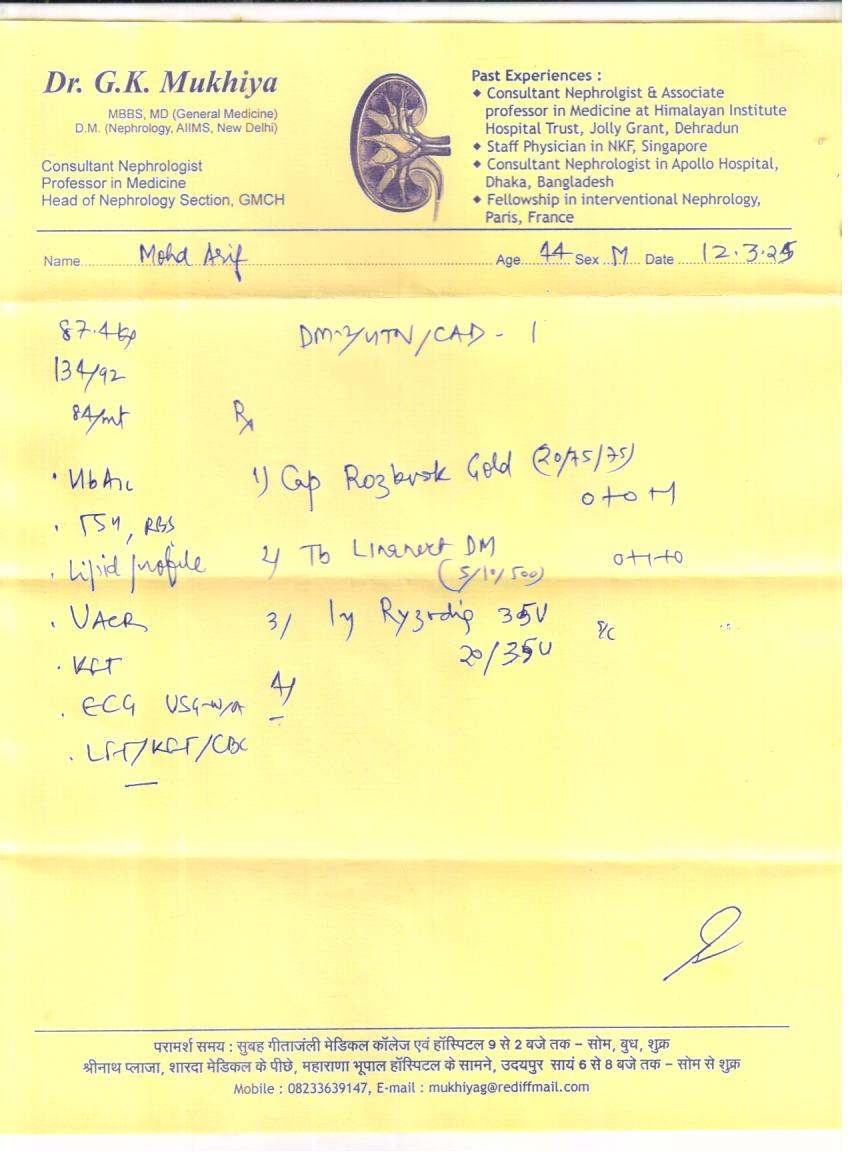 Dr. G.K. Mukhiya
MBBS, MD (General Medicine)
D.M. (Nephrology, AIIMS, New Delhi)
Consultant Nephrologist
Professor in Medicine
Head of Nephrology Section, GMCH
Past Experiences :
◆ Consultant Nephrolgist & Associate
professor in Medicine at Himalayan Institute
Hospital Trust, Jolly Grant, Dehradun
◆ Staff Physician in NKF, Singapore
◆ Consultant Nephrologist in Apollo Hospital,
Dhaka, Bangladesh
◆ Fellowship in interventional Nephrology,
Paris, France
Name Mohd Arif Age 44 Sex M Date 12.3.25
87.4 kg
DM-2/HTN/CAD - 1
134/92
84/mt
Rx
HbA1c
1) Cap Gold (20/75/75)
0+0+1
TSH, RBS
2/ Tb DM
0+1+0
Lipid profile
(5/10/500)
UACR
3/ Ryzodeg 35U S/C
20/35U
KFT
4/
ECG USG-W/A
LFT/KFT/CBC
परामर्श समय : सुबह गीताजंली मेडिकल कॉलेज एवं हॉस्पिटल 9 से 2 बजे तक – सोम, बुध, शुक्र
श्रीनाथ प्लाजा, शारदा मेडिकल के पीछे, महाराणा भूपाल हॉस्पिटल के सामने, उदयपुर सायं 6 से 8 बजे तक – सोम से शुक्र
Mobile : 08233639147, E-mail : mukhiyag@rediffmail.com